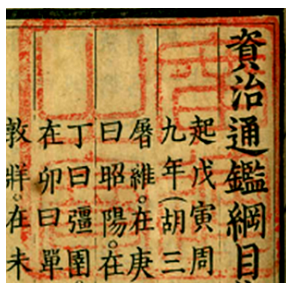 資治通鑑綱目
起戊寅周
九年（胡三
屠維。在庚
曰昭陽。在
丁曰彊圉。
在卯曰單
敦牂。在未